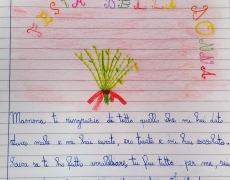 FESTA DELLA DONNA
Mamma ti ringrazio di tutto quello che mi hai dato
stavo male e mi hai curato, ero triste e mi hai consolato.
Scusa se ti ho fatto arrabbiare tu fai tutto per me, sei